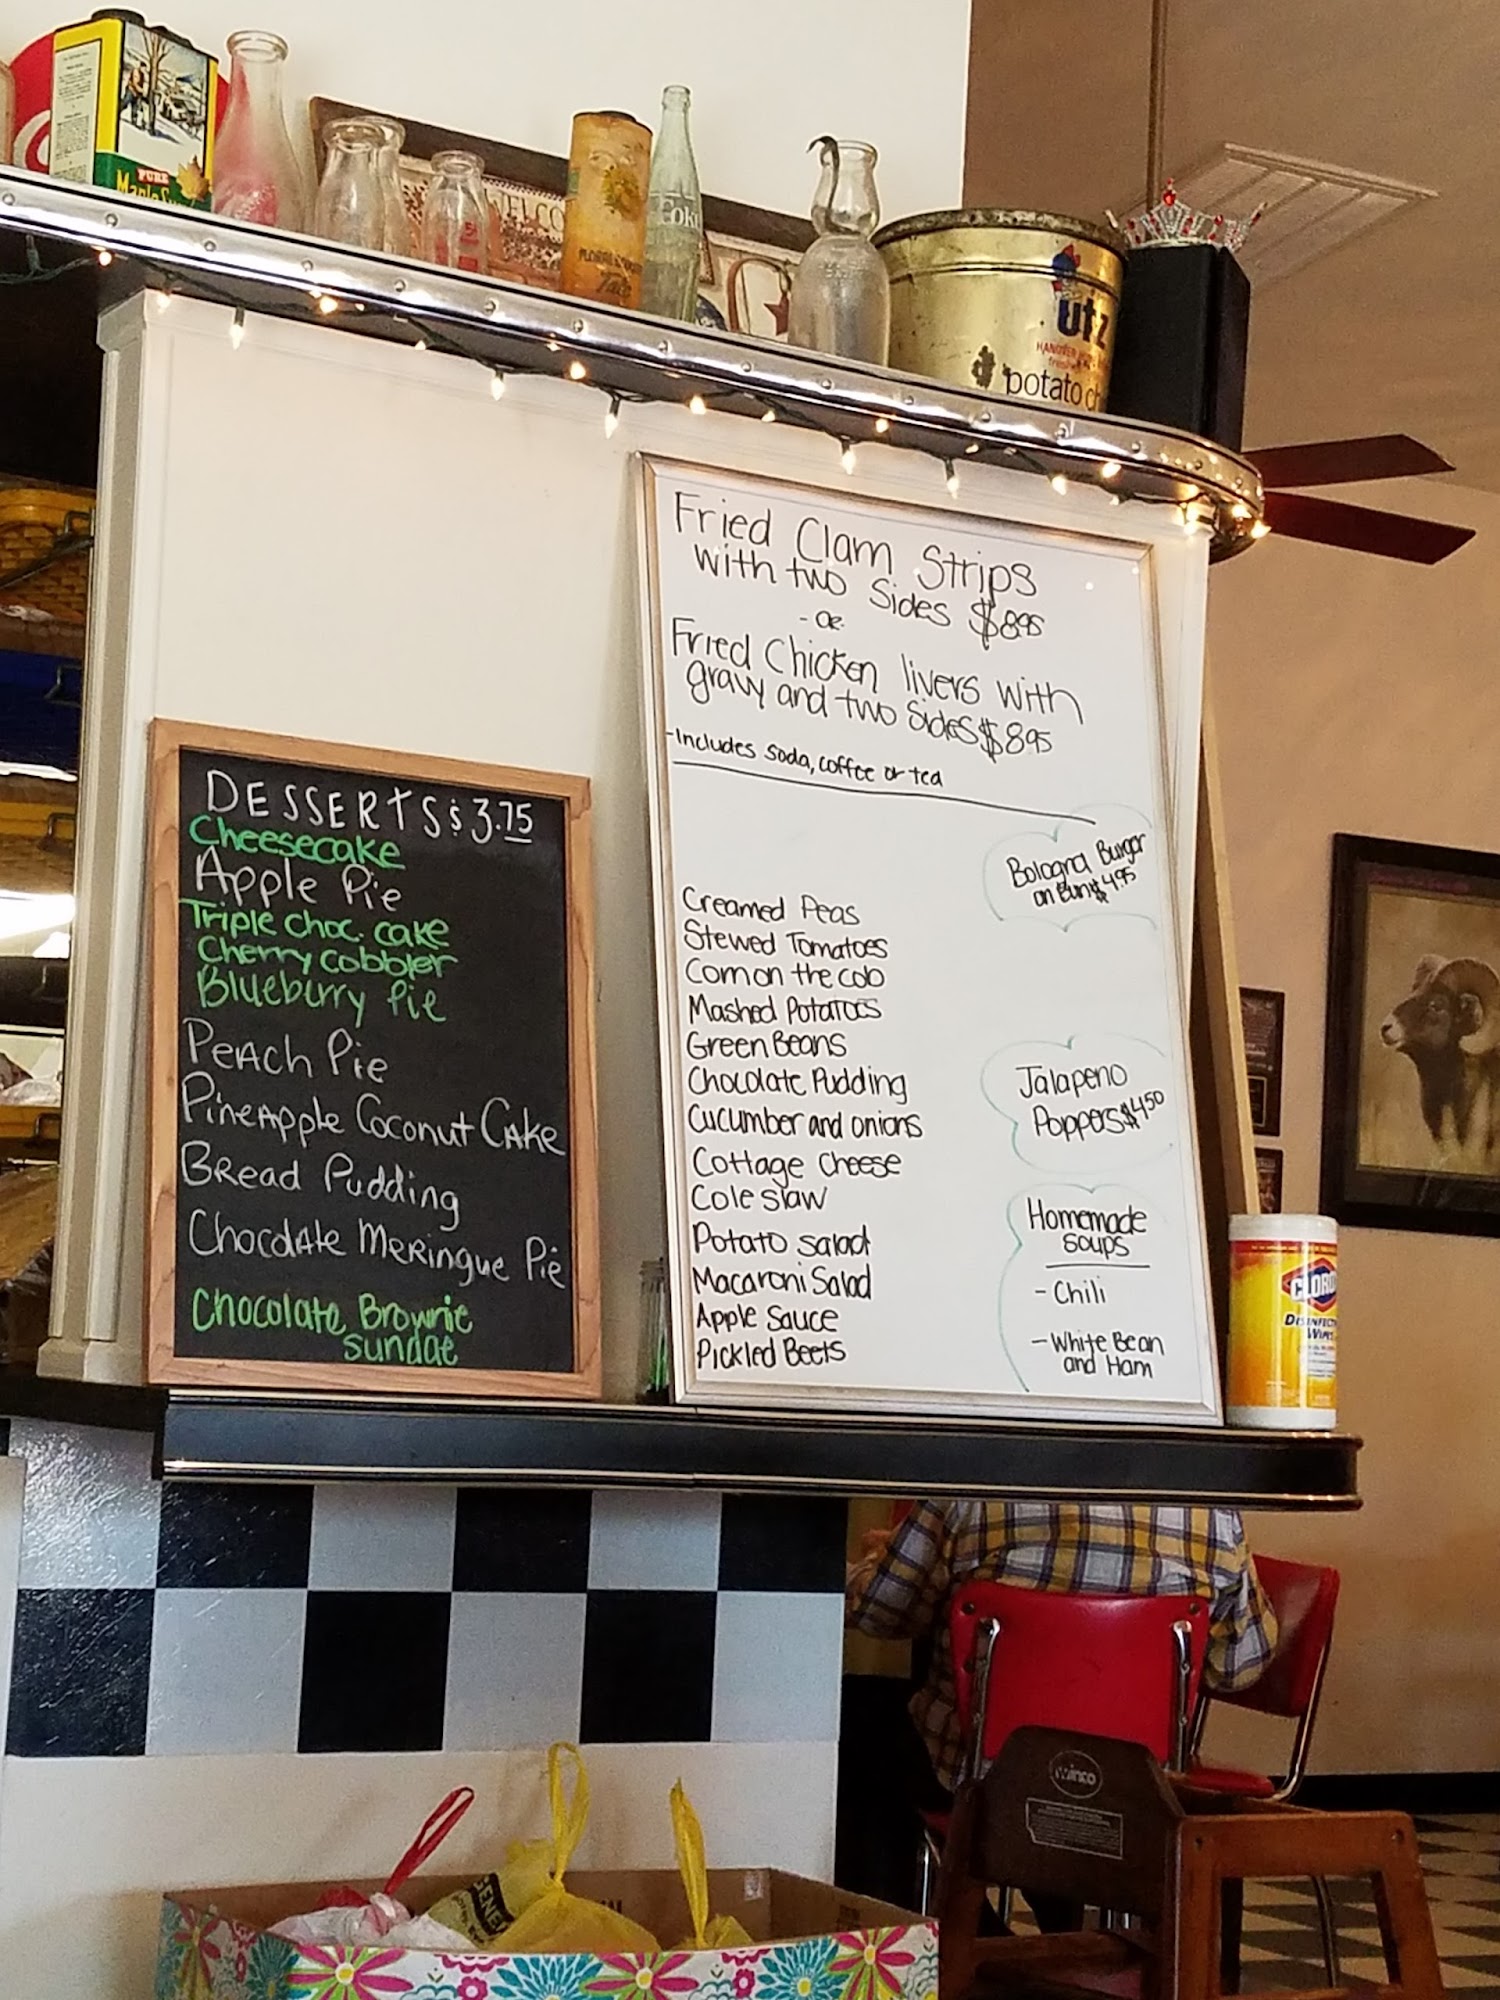 PURE
WELCO
Coke
Talc
utz
potato ch
DESSERTS $3.75
Cheesecake
Apple Pie
Triple choc. cake
Cherry cobbler
Blueberry Pie
Peach Pie
Pineapple Coconut Cake
Bread Pudding
Chocolate Meringue Pie
Chocolate Brownie
sundae
Fried Clam Strips
with two sides $8.95
-or-
Fried Chicken livers with
gravy and two sides $8.95
-Includes soda, coffee or tea
Bologna Burger
on Bun $4.95
Creamed Peas
Stewed Tomatoes
Corn on the cob
Mashed Potatoes
Green Beans
Chocolate Pudding
Cucumber and onions
Cottage Cheese
Cole slaw
Potato salad
Macaroni Salad
Apple Sauce
Pickled Beets
Jalapeno
Poppers $4.50
Homemade
soups
- Chili
- White Bean
and Ham
CLORO
DISINFECT
WIPES
winco
GENE